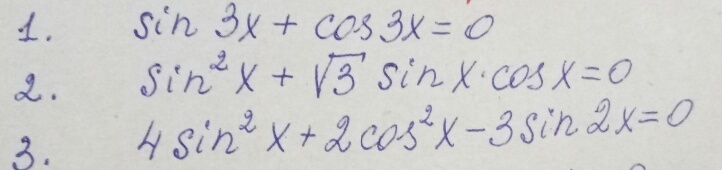 1. sin 3x + cos 3x = 0
2. sin² x + √3 sin x · cos x = 0
3. 4 sin² x + 2 cos² x - 3 sin 2x = 0